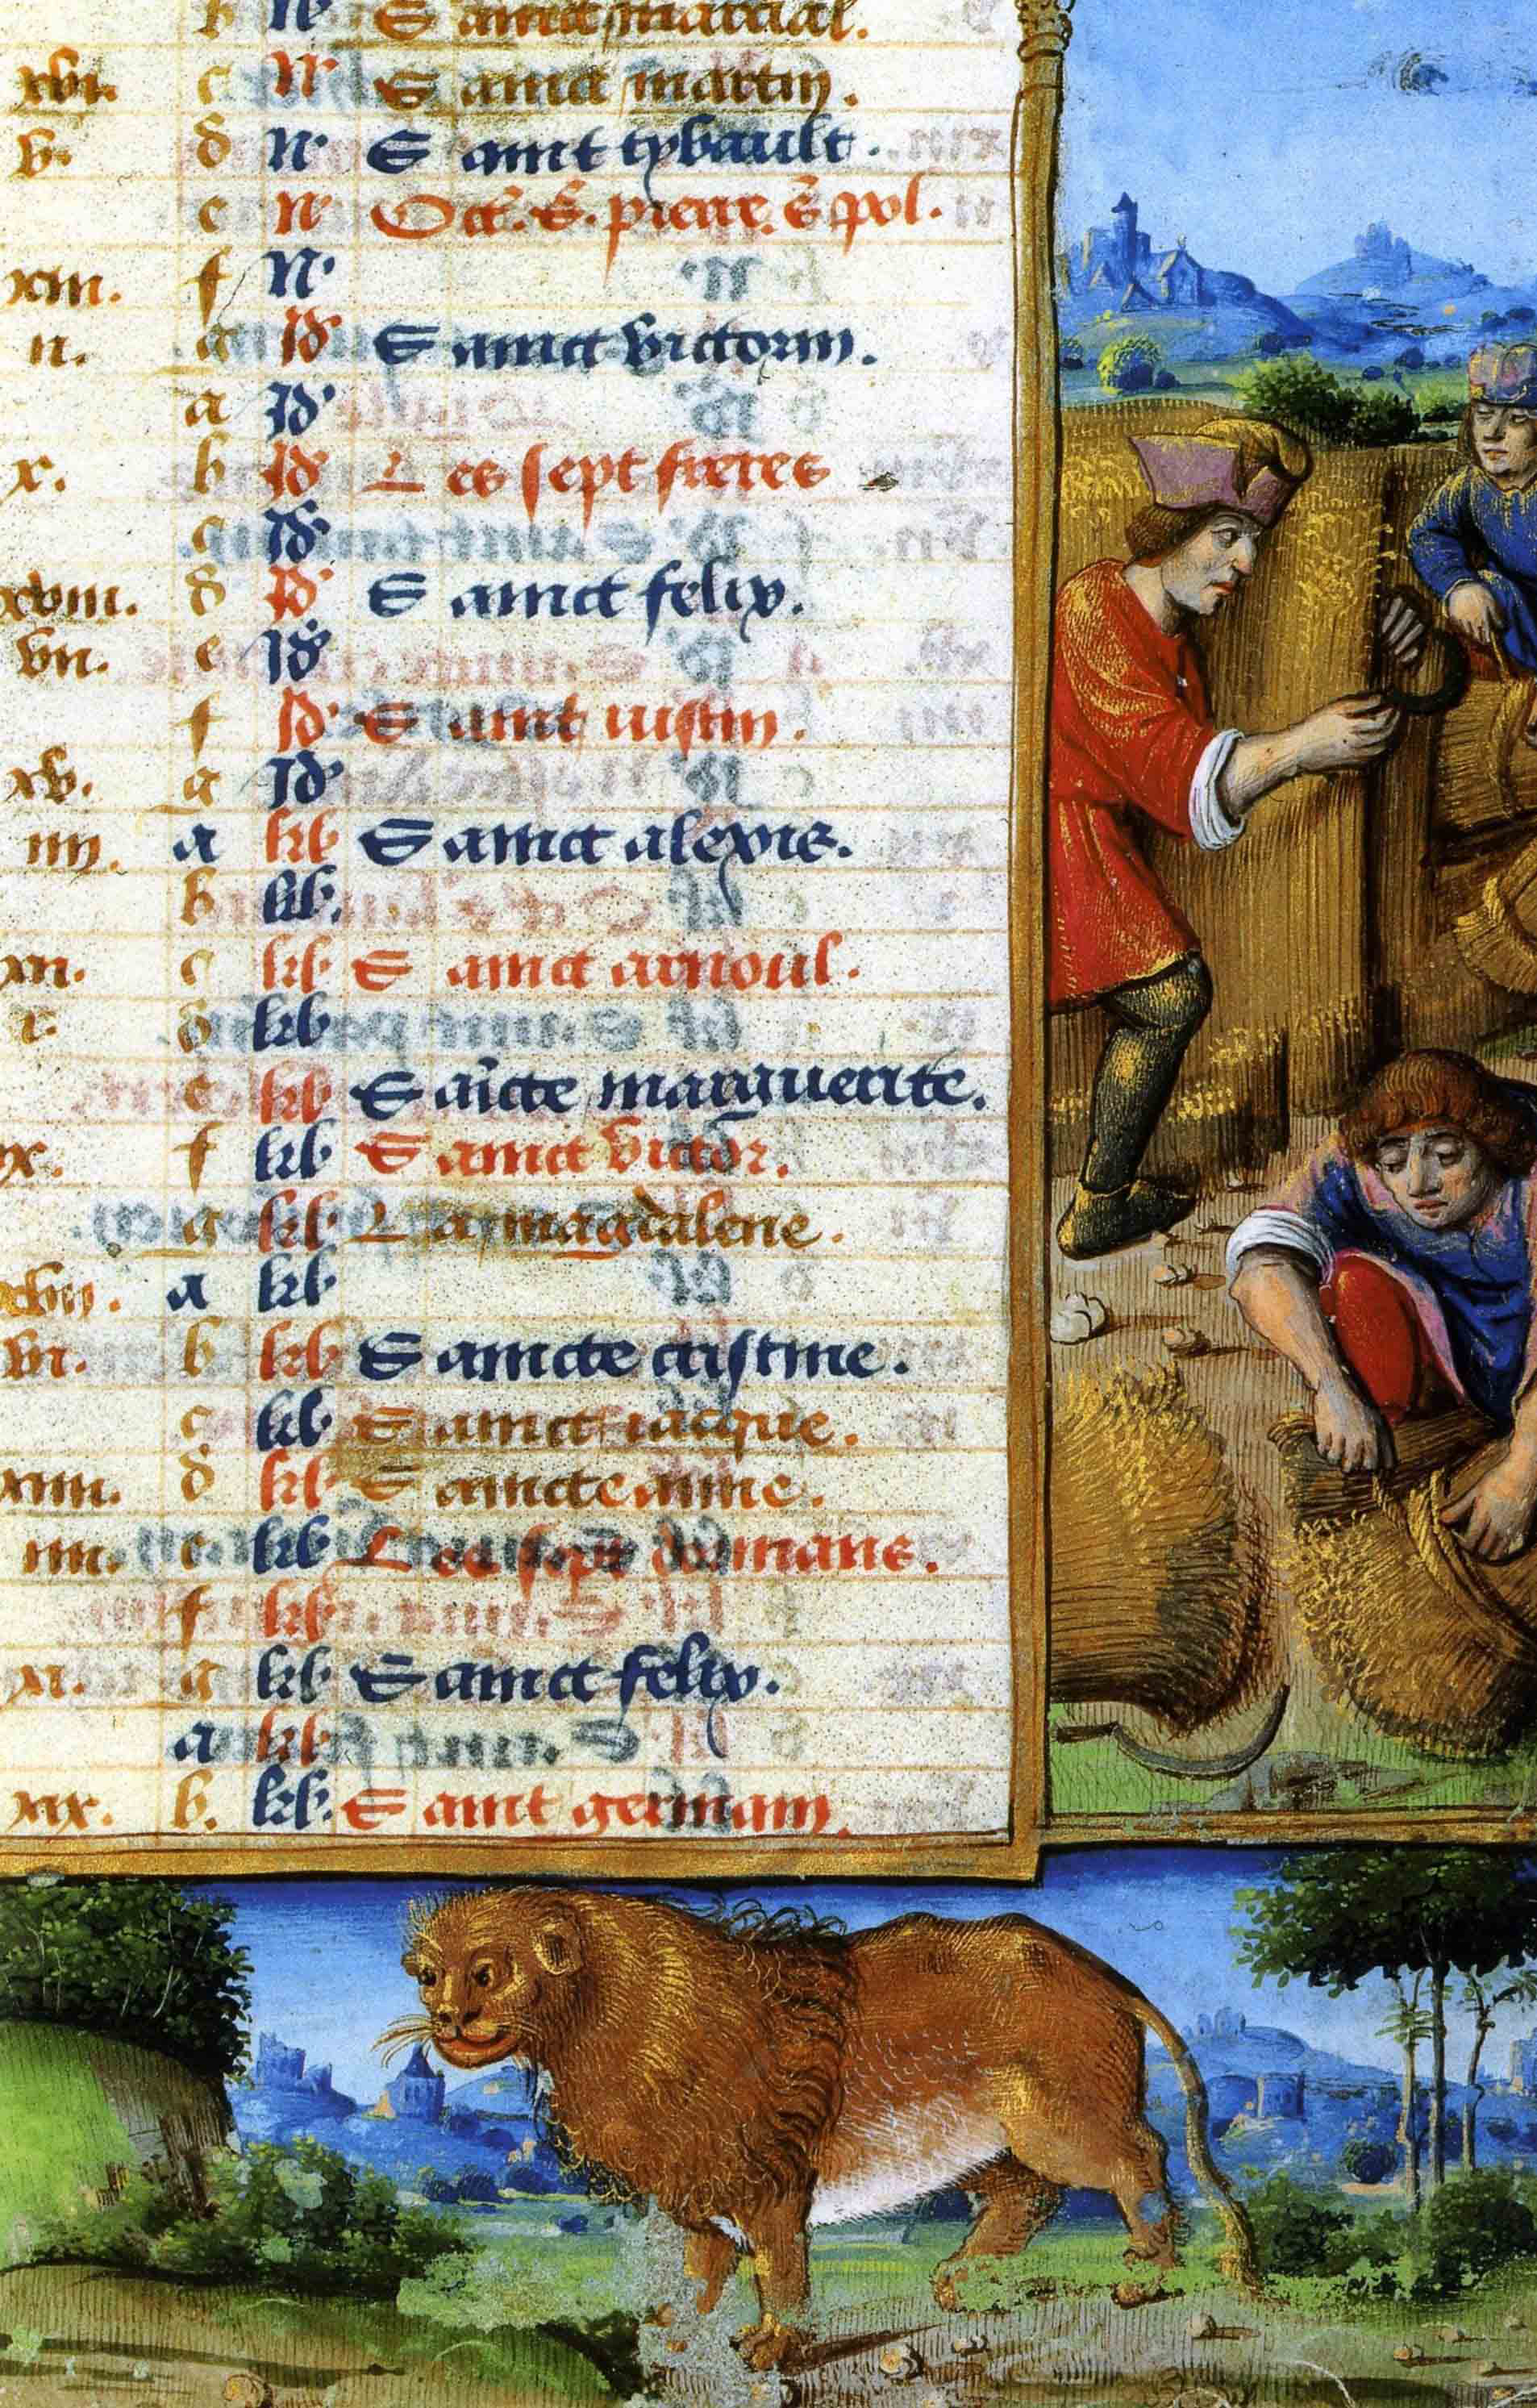 b N Sainct marcial.
xvi. c N Sainct martin.
v. d N Saint tybault.
e N Oct. s. pierre. s pol.
xiii. f N
ii. g Id Sainct victorin.
a Id
x. b Id Les sept freres
c Id
xviii. d Id Sainct felix.
vii. e Id
f Id Saint iustin.
xv. g Id
iiii. a kl Sainct alexis.
b kl.
xii. c kl Sainct arnoul.
i. d kl
e kl Saicte marguerite.
ix. f kl Sainct victor.
g kl La magdalene.
xvii. a kl
vi. b kl Saincte cristine.
c kl Sainct iacque.
xiiii. d kl Saincte anne.
iii. e kl Les sept dormans.
f kl
xi. g kl Sainct felix.
a kl
xix. b. kl. Saint germain.